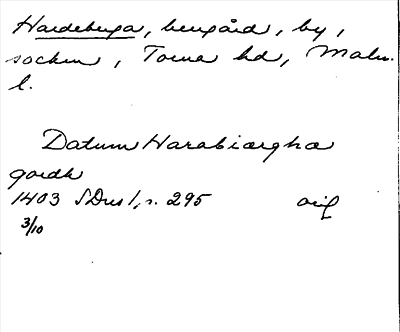 Hardeberga, herrgård, by,
socken, Torna hd, Malm.
l.
Datum Harabiærgha
gardh
1403 SDns 1, s. 295 orig
3/10